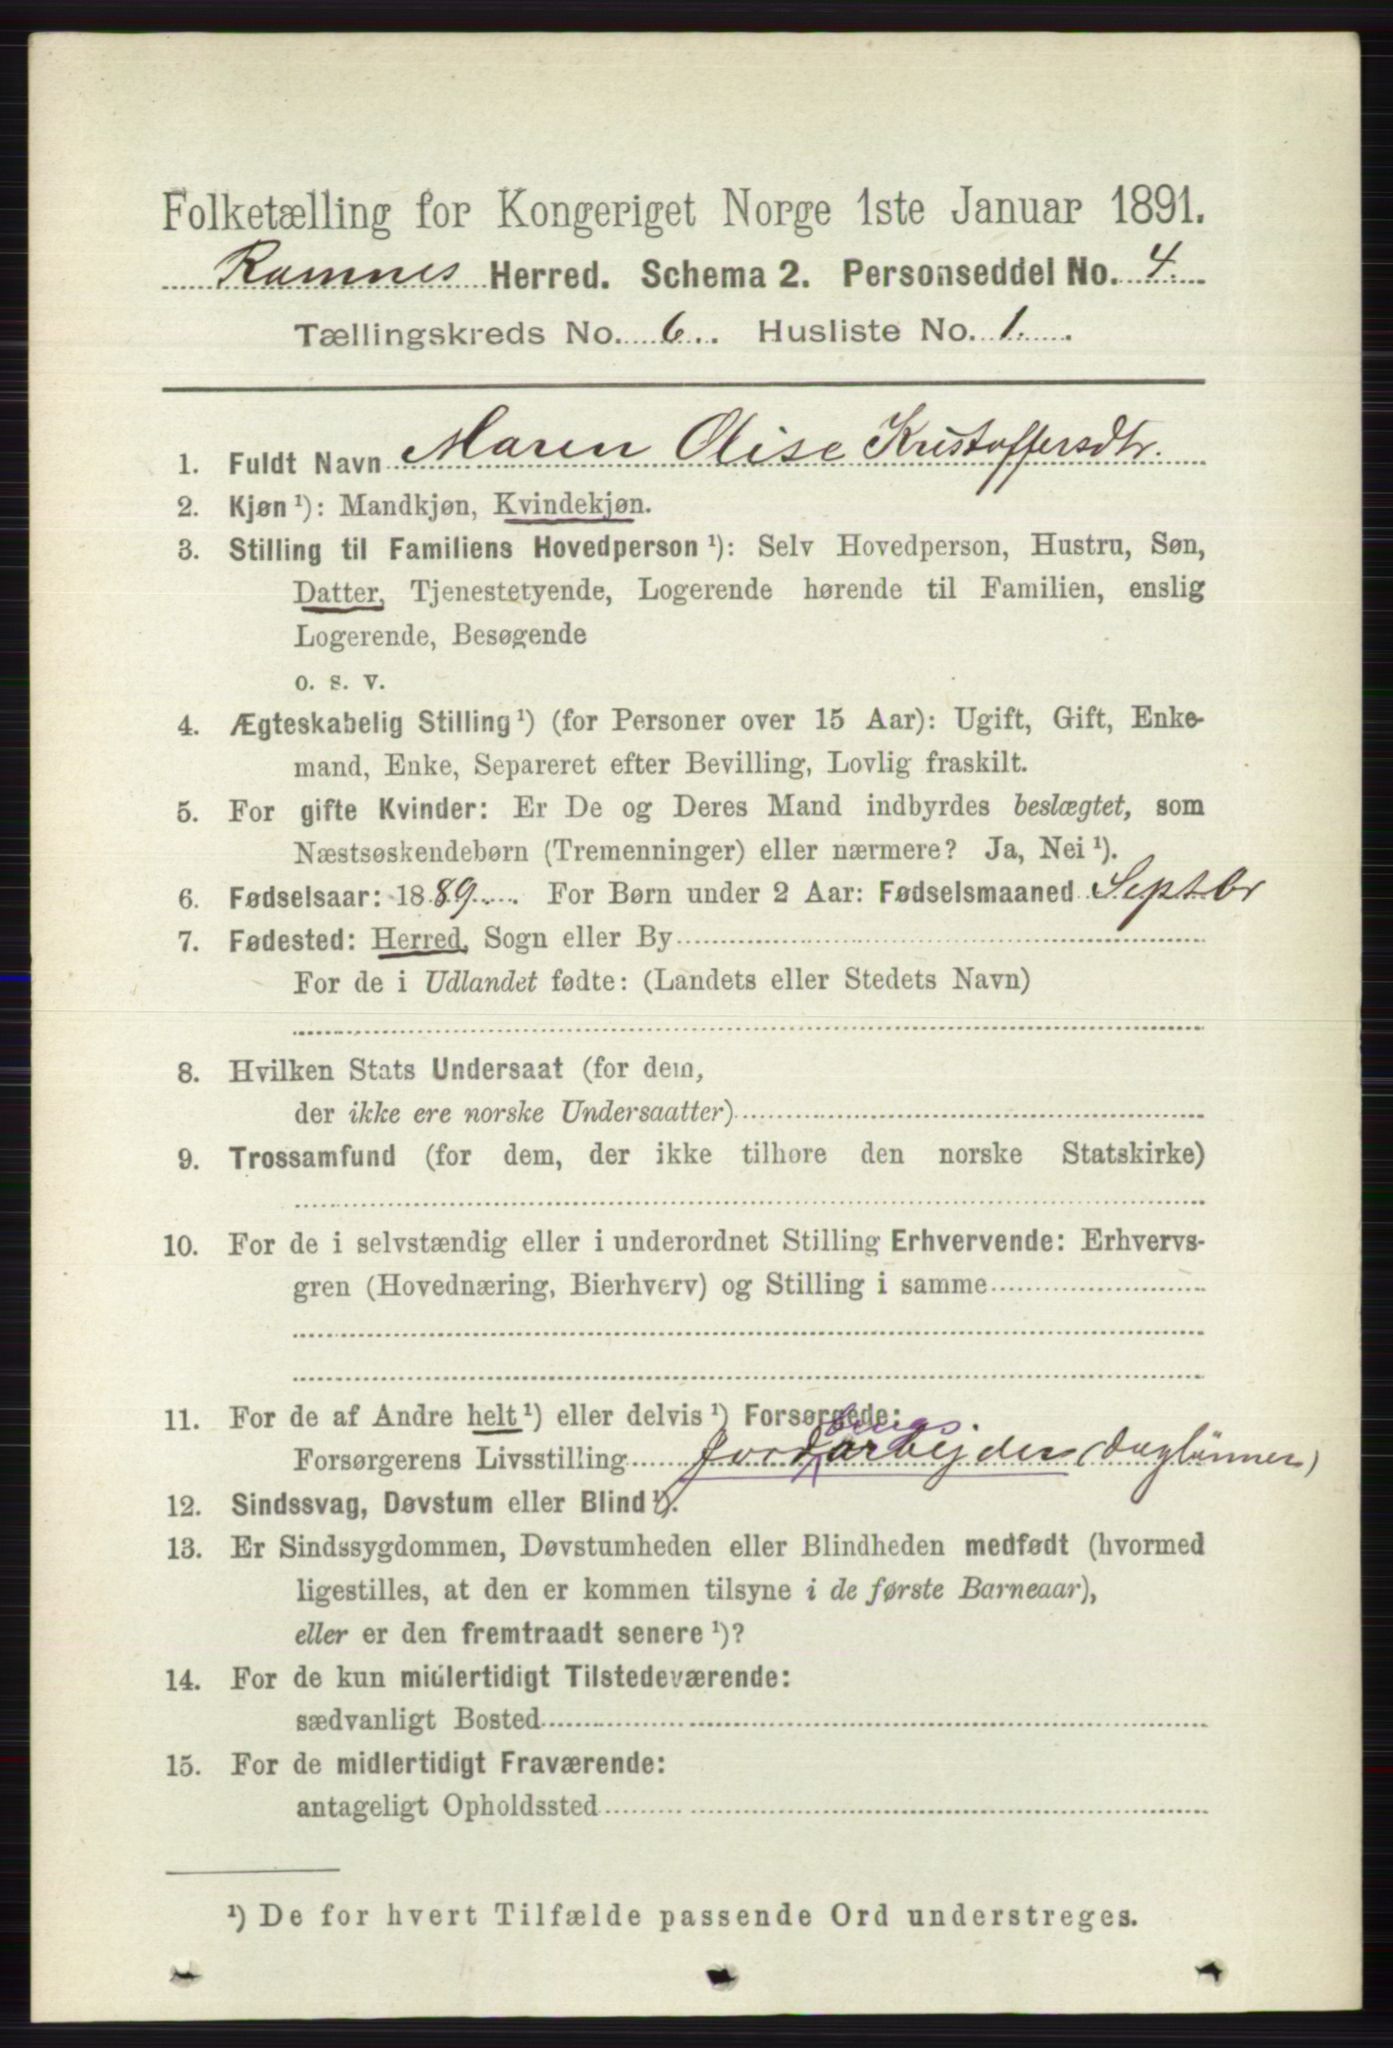 Folketælling for Kongeriget Norge 1ste Januar 1891.
Ramnes Herred. Schema 2. Personseddel No. 4.
Tællingskreds No. 6. Husliste No. 1.
1. Fuldt Navn Maren Olise Kristoffersdtr.
2. Kjøn ¹): Mandkjøn, Kvindekjøn.
3. Stilling til Familiens Hovedperson ¹): Selv Hovedperson, Hustru, Søn,
Datter, Tjenestetyende, Logerende hørende til Familien, enslig
Logerende, Besøgende
o. s. v.
4. Ægteskabelig Stilling ¹) (for Personer over 15 Aar): Ugift, Gift, Enke-
mand, Enke, Separeret efter Bevilling, Lovlig fraskilt.
5. For gifte Kvinder: Er De og Deres Mand indbyrdes beslægtet, som
Næstsøskendebørn (Tremenninger) eller nærmere? Ja, Nei ¹).
6. Fødselsaar: 1889. For Børn under 2 Aar: Fødselsmaaned Septbr
7. Fødested: Herred, Sogn eller By
For de i Udlandet fødte: (Landets eller Stedets Navn)
8. Hvilken Stats Undersaat (for dem,
der ikke ere norske Undersaatter)
9. Trossamfund (for dem, der ikke tilhøre den norske Statskirke)
10. For de i selvstændig eller i underordnet Stilling Erhvervende: Erhvervs-
gren (Hovednæring, Bierhverv) og Stilling i samme
11. For de af Andre helt ¹) eller delvis ¹) Forsørgede:
brugs
Forsørgerens Livsstilling Jordarbejder (Daglønner)
12. Sindssvag, Døvstum eller Blind ¹).
13. Er Sindssygdommen, Døvstumheden eller Blindheden medfødt (hvormed
ligestilles, at den er kommen tilsyne i de første Barneaar),
eller er den fremtraadt senere ¹)?
14. For de kun midlertidigt Tilstedeværende:
sædvanligt Bosted
15. For de midlertidigt Fraværende:
antageligt Opholdssted
¹) De for hvert Tilfælde passende Ord understreges.